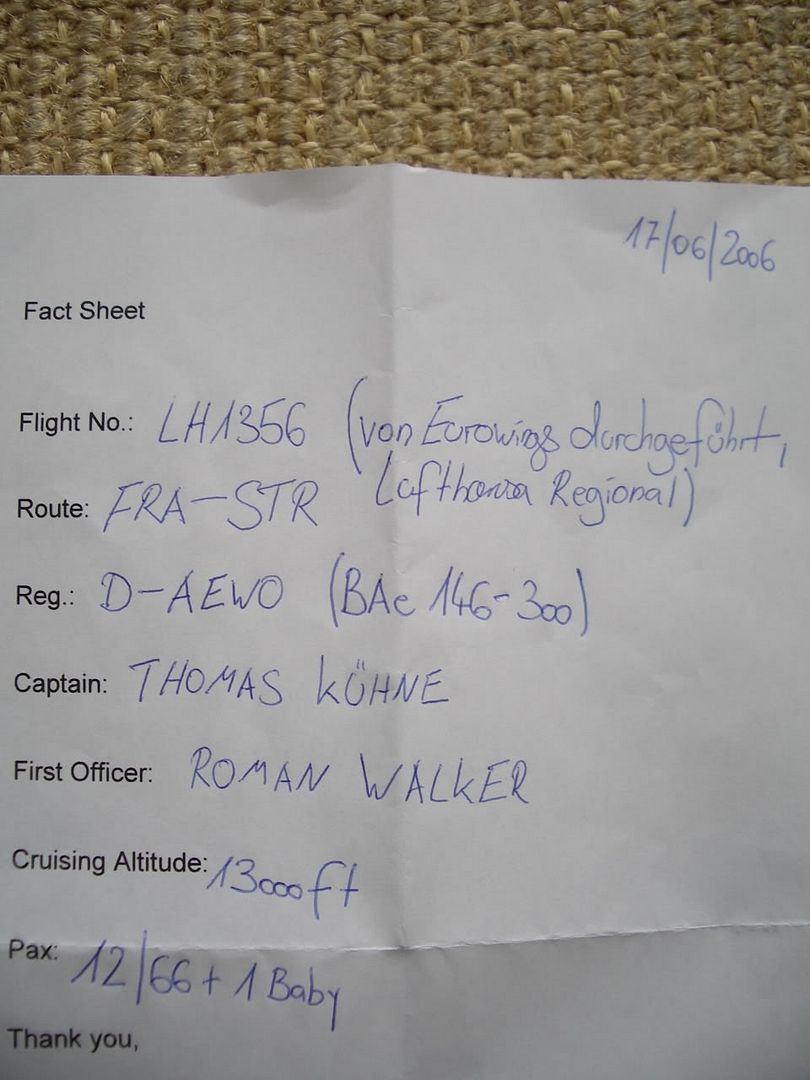 17/06/2006
Fact Sheet
Flight No.: LH1356 (von Eurowings durchgeführt,
Lufthansa Regional)
Route: FRA-STR
Reg.: D-AEWO (BAe 146-300)
Captain: THOMAS KÜHNE
First Officer: ROMAN WALKER
Cruising Altitude: 13000ft
Pax: 12/66 + 1 Baby
Thank you,